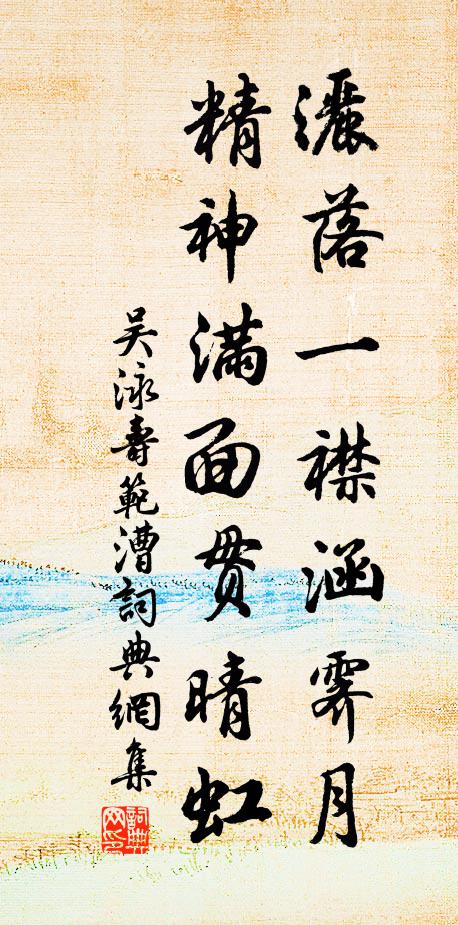 灑落一襟涵霽月
精神滿面貫晴虹
吴泳壽範漕詞典網集
詞典网印